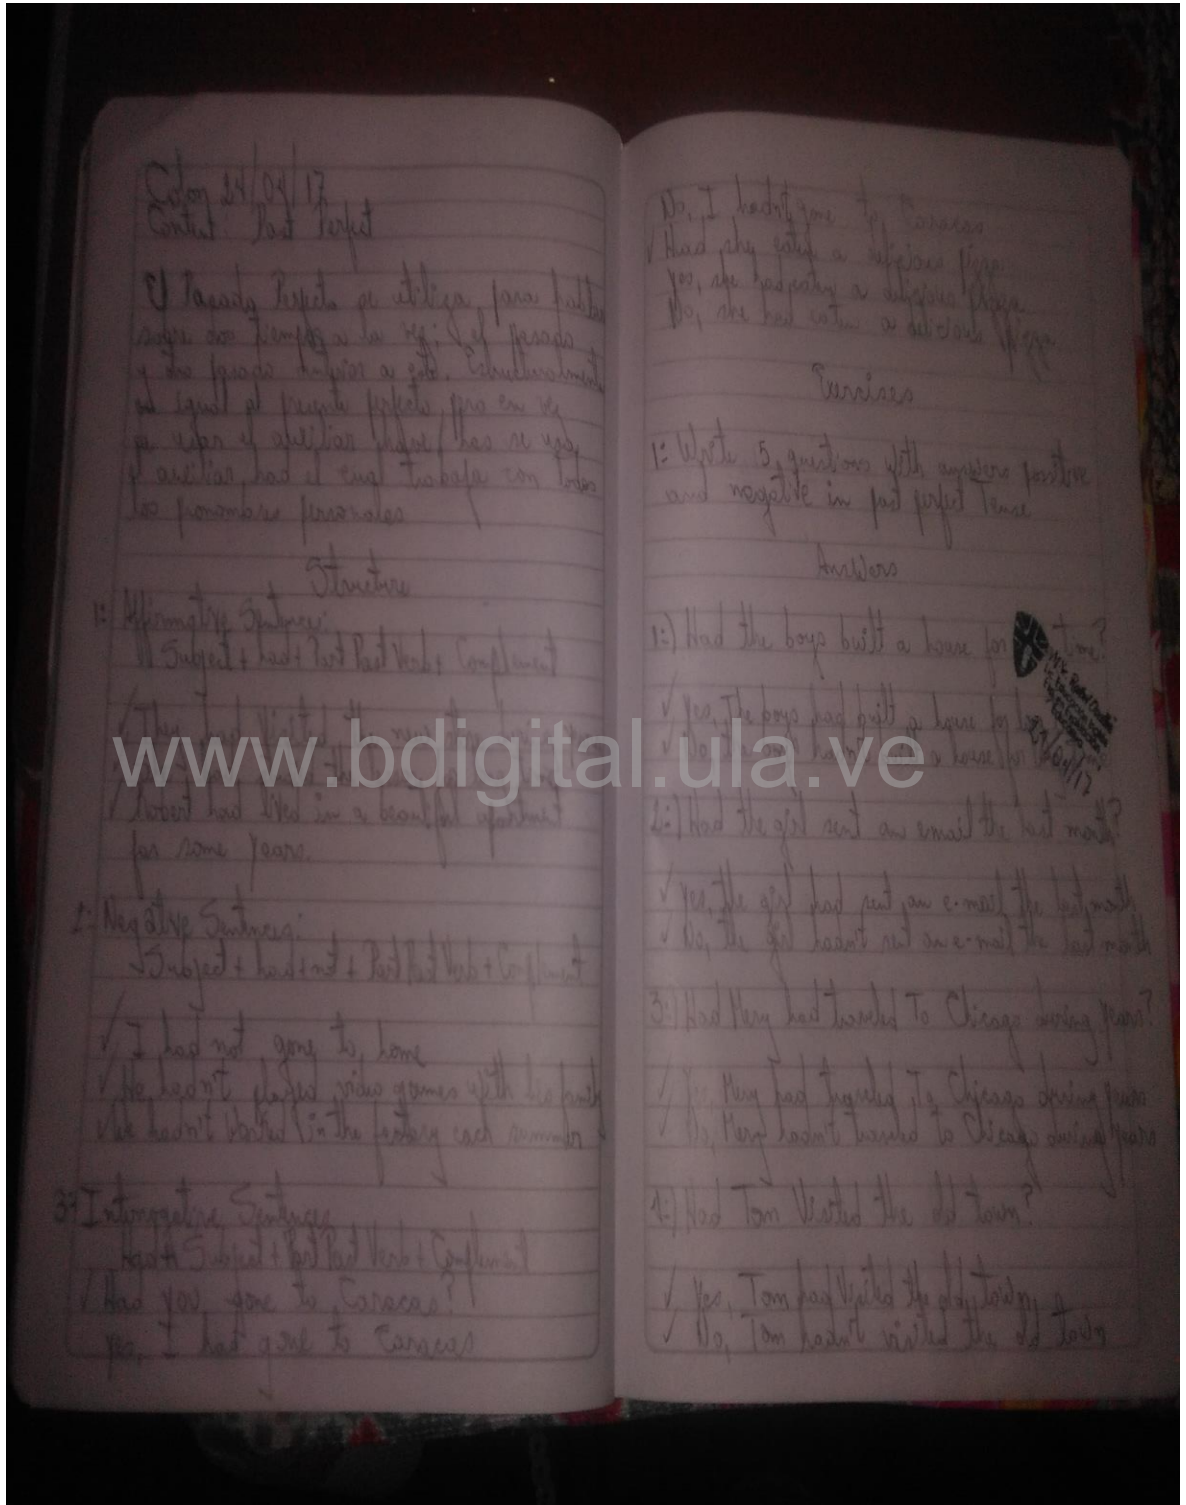 Colon 24/04/17
Content: Past Perfect
El Pasado Perfecto se utiliza para hablar
sobre dos tiempos a la vez; el pasado
y otro pasado anterior a este. Estructuralmente
es igual al presente perfecto, pero en vez
de usar el auxiliar have/has se usa
el auxiliar had el cual trabaja con todos
los pronombres personales
Structure
1: Affirmative Sentences:
Subject + had + Past Part Verb + Complement
They had visited the
Robert had lived in a beautiful apartment
for some years.
2: Negative Sentences:
Subject + had + not + Past Part Verb + Complement
I had not gone to home
He hadn't played video games with his family
We hadn't worked in the factory each summer
3: Interrogative Sentences
Had + Subject + Past Part Verb + Complement
Had you gone to Caracas?
Yes, I had gone to Caracas
No, I hadn't gone to Caracas
Had she eaten a delicious pizza
Yes, she had eaten a delicious pizza
No, she had eaten a delicious pizza
Exercises
1: Write 5 questions with answers positive
and negative in past perfect Tense
Answers
1:) Had the boys built a house for time?
Yes, The boys had built a house for
hadn't a house for
24/04/17
www.bdigital.ula.ve
2:) Had the girl sent an email the last month?
Yes, the girl had sent an e-mail the last month
No, the girl hadn't sent an e-mail the last month
3:) Had Mery had traveled To Chicago during years?
Yes, Mery had traveled To Chicago during years
No, Mery hadn't traveled to Chicago during years
4:) Had Tom Visited the old town?
Yes, Tom had Visited the old town
No, Tom hadn't visited the old town